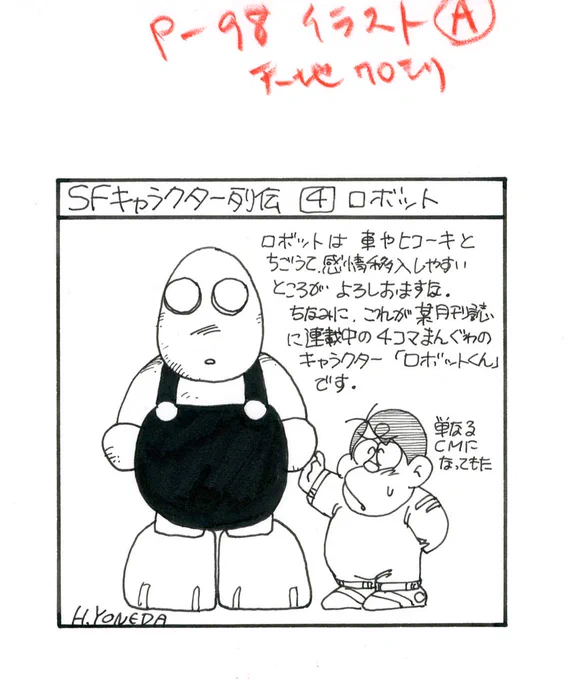 P-98 イラスト A
天地70ミリ
SFキャラクター列伝 4 ロボット
ロボットは 車やヒコーキと
ちごうて、感情移入しやすい
ところが よろしおますな。
ちなみに、これが某月刊誌
に連載中の4コマまんぐゎの
キャラクター「ロボットくん」
です。
単なる
CMに
なってもた
H.YONEDA